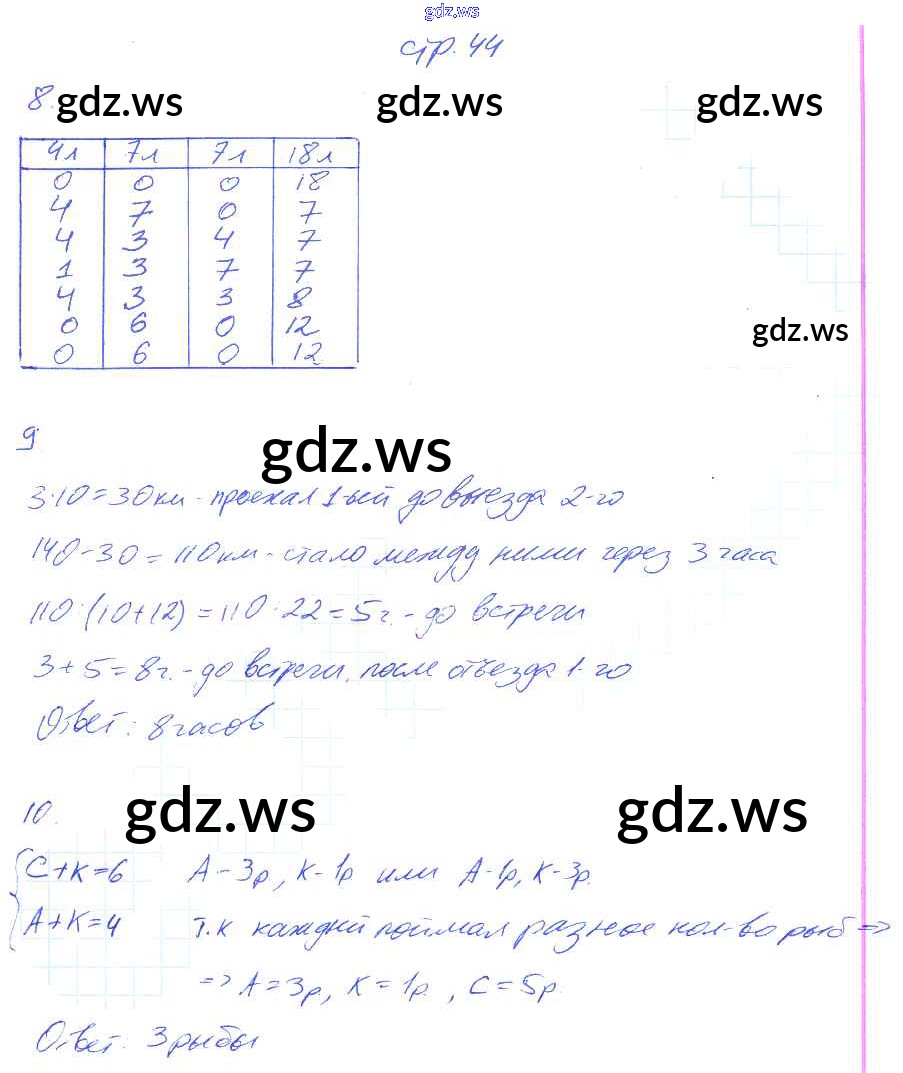 gdz.ws
стр. 44
8. gdz.ws gdz.ws gdz.ws
4л 7л 7л 18л
0 0 0 18
4 7 0 7
4 3 4 7
1 3 7 7
4 3 3 8
0 6 0 12
0 6 0 12
gdz.ws
9
gdz.ws
3·10=30км - проехал 1-ый до выезда 2-го
140-30=110км - стало между ними через 3 часа
110:(10+12)=110:22=5ч. - до встречи
3+5=8ч. - до встречи, после отъезда 1-го
Ответ: 8 часов
10. gdz.ws gdz.ws
С+К=6 А-3р, К-1р или А-1р, К-3р.
А+К=4 Т.к каждый поймал разное кол-во рыб =>
=> А=3р, К=1р, С=5р.
Ответ: 3 рыбы